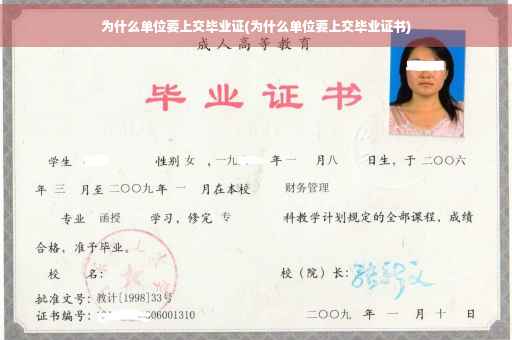 为什么单位要上交毕业证(为什么单位要上交毕业证书)
成人高等教育
毕业证书
学生 性别 女 ,一九 年 一 月八 日生，于 二〇〇六
年 三 月至 二〇〇九 年 一 月在本校 财务管理
专业 函授 学习，修完 专 科教学计划规定的全部课程，成绩
合格，准予毕业。
校 名： 校（院）长：
批准文号：教计[1998]33号
证书编号： 06001310 二〇〇九 年 一 月 十 日